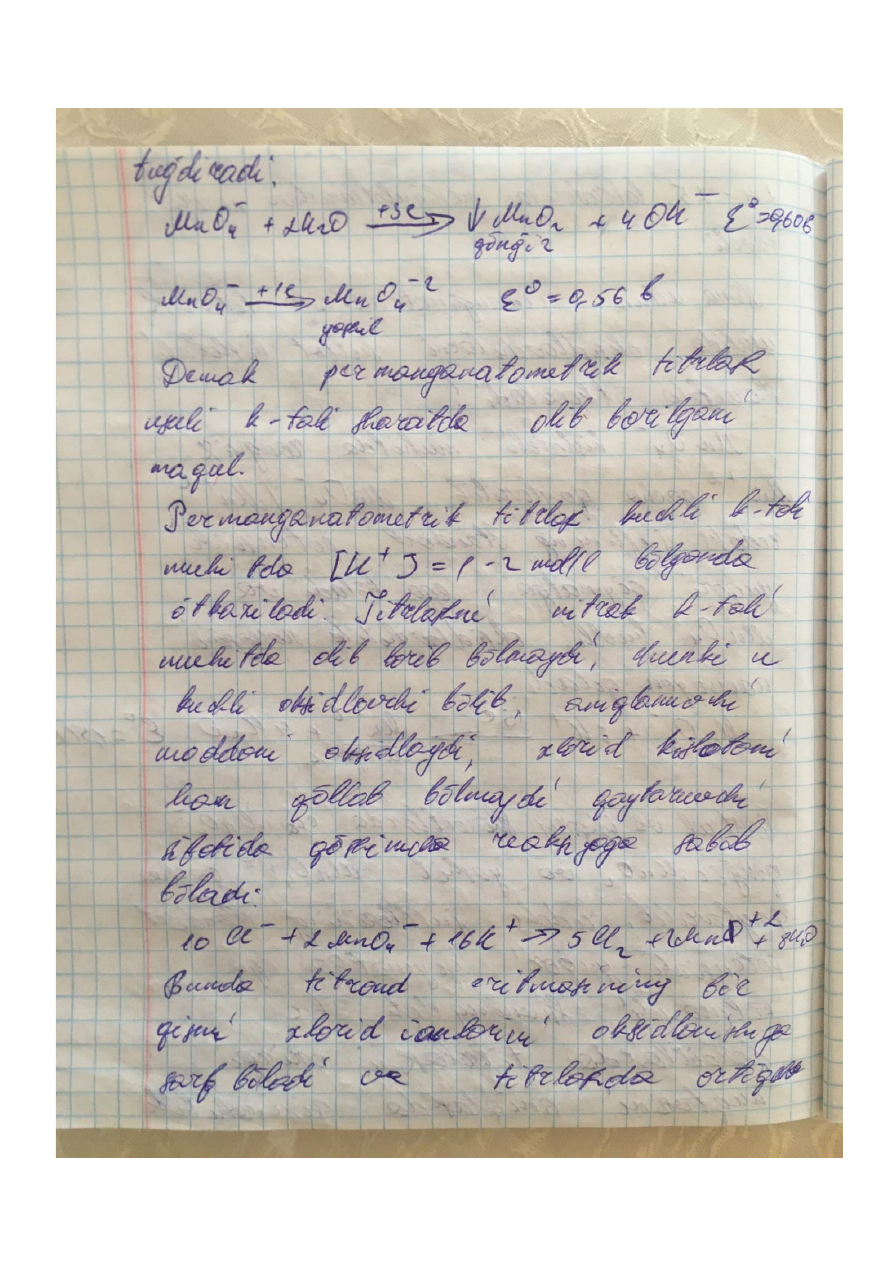 tug'diradi.
MnO₄⁻ + 2H₂O +3e → ↓ MnO₂ + 4 OH⁻ ε⁰=0,60 b
qo'ng'ir
MnO₄⁻ +1e → MnO₄⁻² ε⁰ = 0,56 b
yashil
Demak permanganatometrik titrlash
usuli k-tali sharoitda olib borilgani
maqul.
Permanganatometrik titrlash kuchli k-tali
muhitda [H⁺] = 1-2 mol/l bõlganda
õtkaziladi. Titrlashni nitrat k-tali
muhitda olib borib bõlmaydi, chunki u
kuchli oksidlovchi bõlib, aniqlanuvchi
moddani oksidlaydi, xlorid kislotani
ham qõllab bõlmaydi qaytaruvchi
sifatida qõshimcha reaksiyaga sabab
bõladi:
10 Cl⁻ + 2 MnO₄⁻ + 16H⁺ → 5Cl₂ + 2Mn⁺² + 8H₂O
Bunda titrand eritmasining bir
qismi xlorid ionlarini oksidlanishga
sarf bõladi va titrlashda ortiqcha